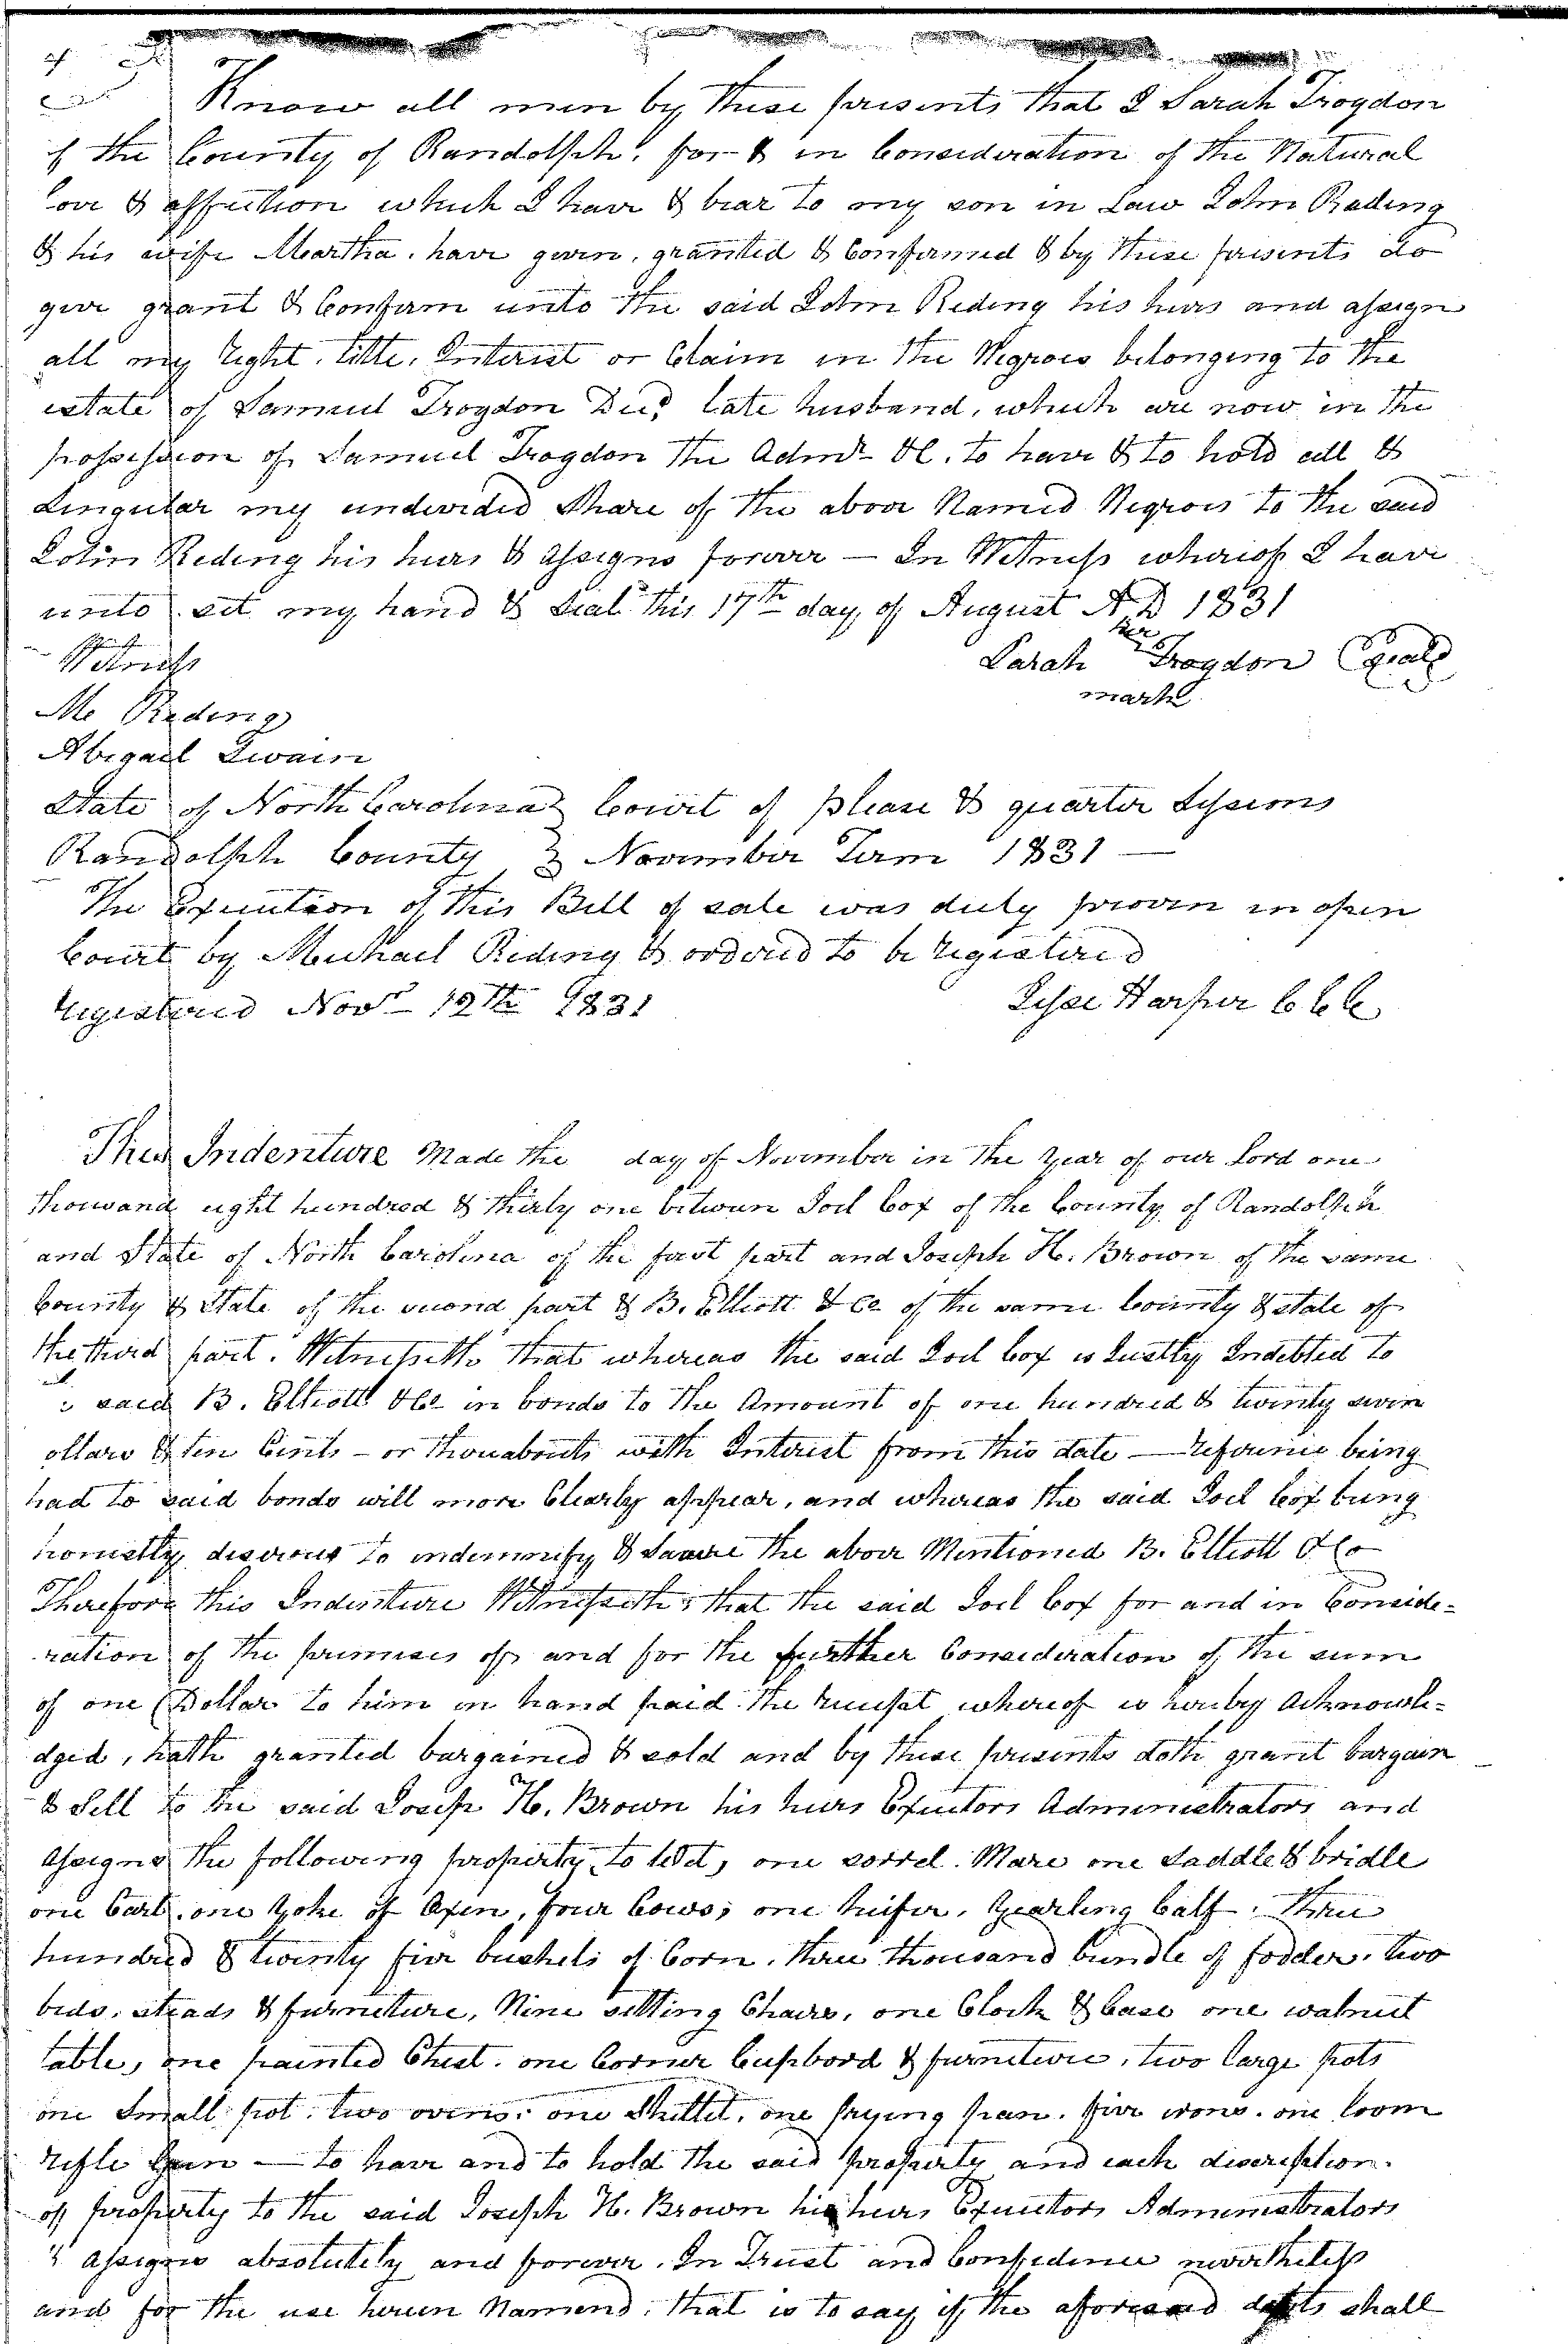 Know all men by these presents that I Sarah Trogdon
of the County of Randolph, for & in Consideration of the Natural
love & affection which I have & bear to my son in Law John Reding
& his wife Martha, have given, granted & Confirmed & by these presents do
give grant & Confirm unto the said John Reding his heirs and assigns
all my right, title, Interest or Claim in the Negroes belonging to the
estate of Samuel Trogdon Decd late husband, which are now in the
possession of Samuel Trogdon the Admr &C. to have & to hold all &
Singular my undivided Share of the above Named Negroes to the said
John Reding his heirs & assigns forever — In Witness whereof I have
unto set my hand & Seal this 17th day of August A D 1831
Witness Sarah her Trogdon (Seal)
mark
Me Reding
Abigail Swain
State of North Carolina } Court of please & quarter Sessions
Randolph County } November Term 1831 —
The Execution of this Bill of sale was duly proven in open
Court by Michael Reding & ordered to be registered
registered Novr 12th 1831 Jesse Harper C C C
This Indenture Made the day of November in the year of our Lord one
thousand eight hundred & thirty one between Joel Cox of the County of Randolph
and State of North Carolina of the first part and Joseph H. Brown of the same
County & State of the second part & B. Elliott & Co of the same County & state of
the third part. Witnesseth that whereas the said Joel Cox is Justly Indebted to
said B. Elliott & Co in bonds to the Amount of one hundred & twenty seven
ollars & ten Cents – or thereabouts with Interest from this date — reference being
had to said bonds will more Clearly appear, and whereas the said Joel Cox being
honestly desirous to indemnify & Secure the above Mentioned B. Elliott & Co
Therefore this Indenture Witnesseth, that the said Joel Cox for and in Conside-
ration of the premises of and for the further Consideration of the sum
of one Dollar to him in hand paid the receipt whereof is hereby Acknowle-
dged, hath granted bargained & sold and by these presents doth grant bargain
& Sell to the said Josep H. Brown his heirs Executors Administrators and
Assigns the following property, to Wit, one sorrel Mare one Saddle & bridle
one Cart, one Yoke of Oxen, four Cows, one heifer, Yearling Calf, three
hundred & twenty five bushels of Corn, three thousand bundle of fodder, two
beds, steads & furniture, Nine sitting Chairs, one Clock & Case one walnut
table, one painted Chest, one Corner Cupbord & furniture, two large pots
one Small pot, two ovens, one Skillet, one frying pan, five irons, one loom
rifle Gun — to have and to hold the said property and each discription
of property to the said Joseph H. Brown his heirs Executors Administrators
& Assigns absolutely and forever. In Trust and Confidence nevertheless
and for the use herein Namend, that is to say if the aforesaid debts shall